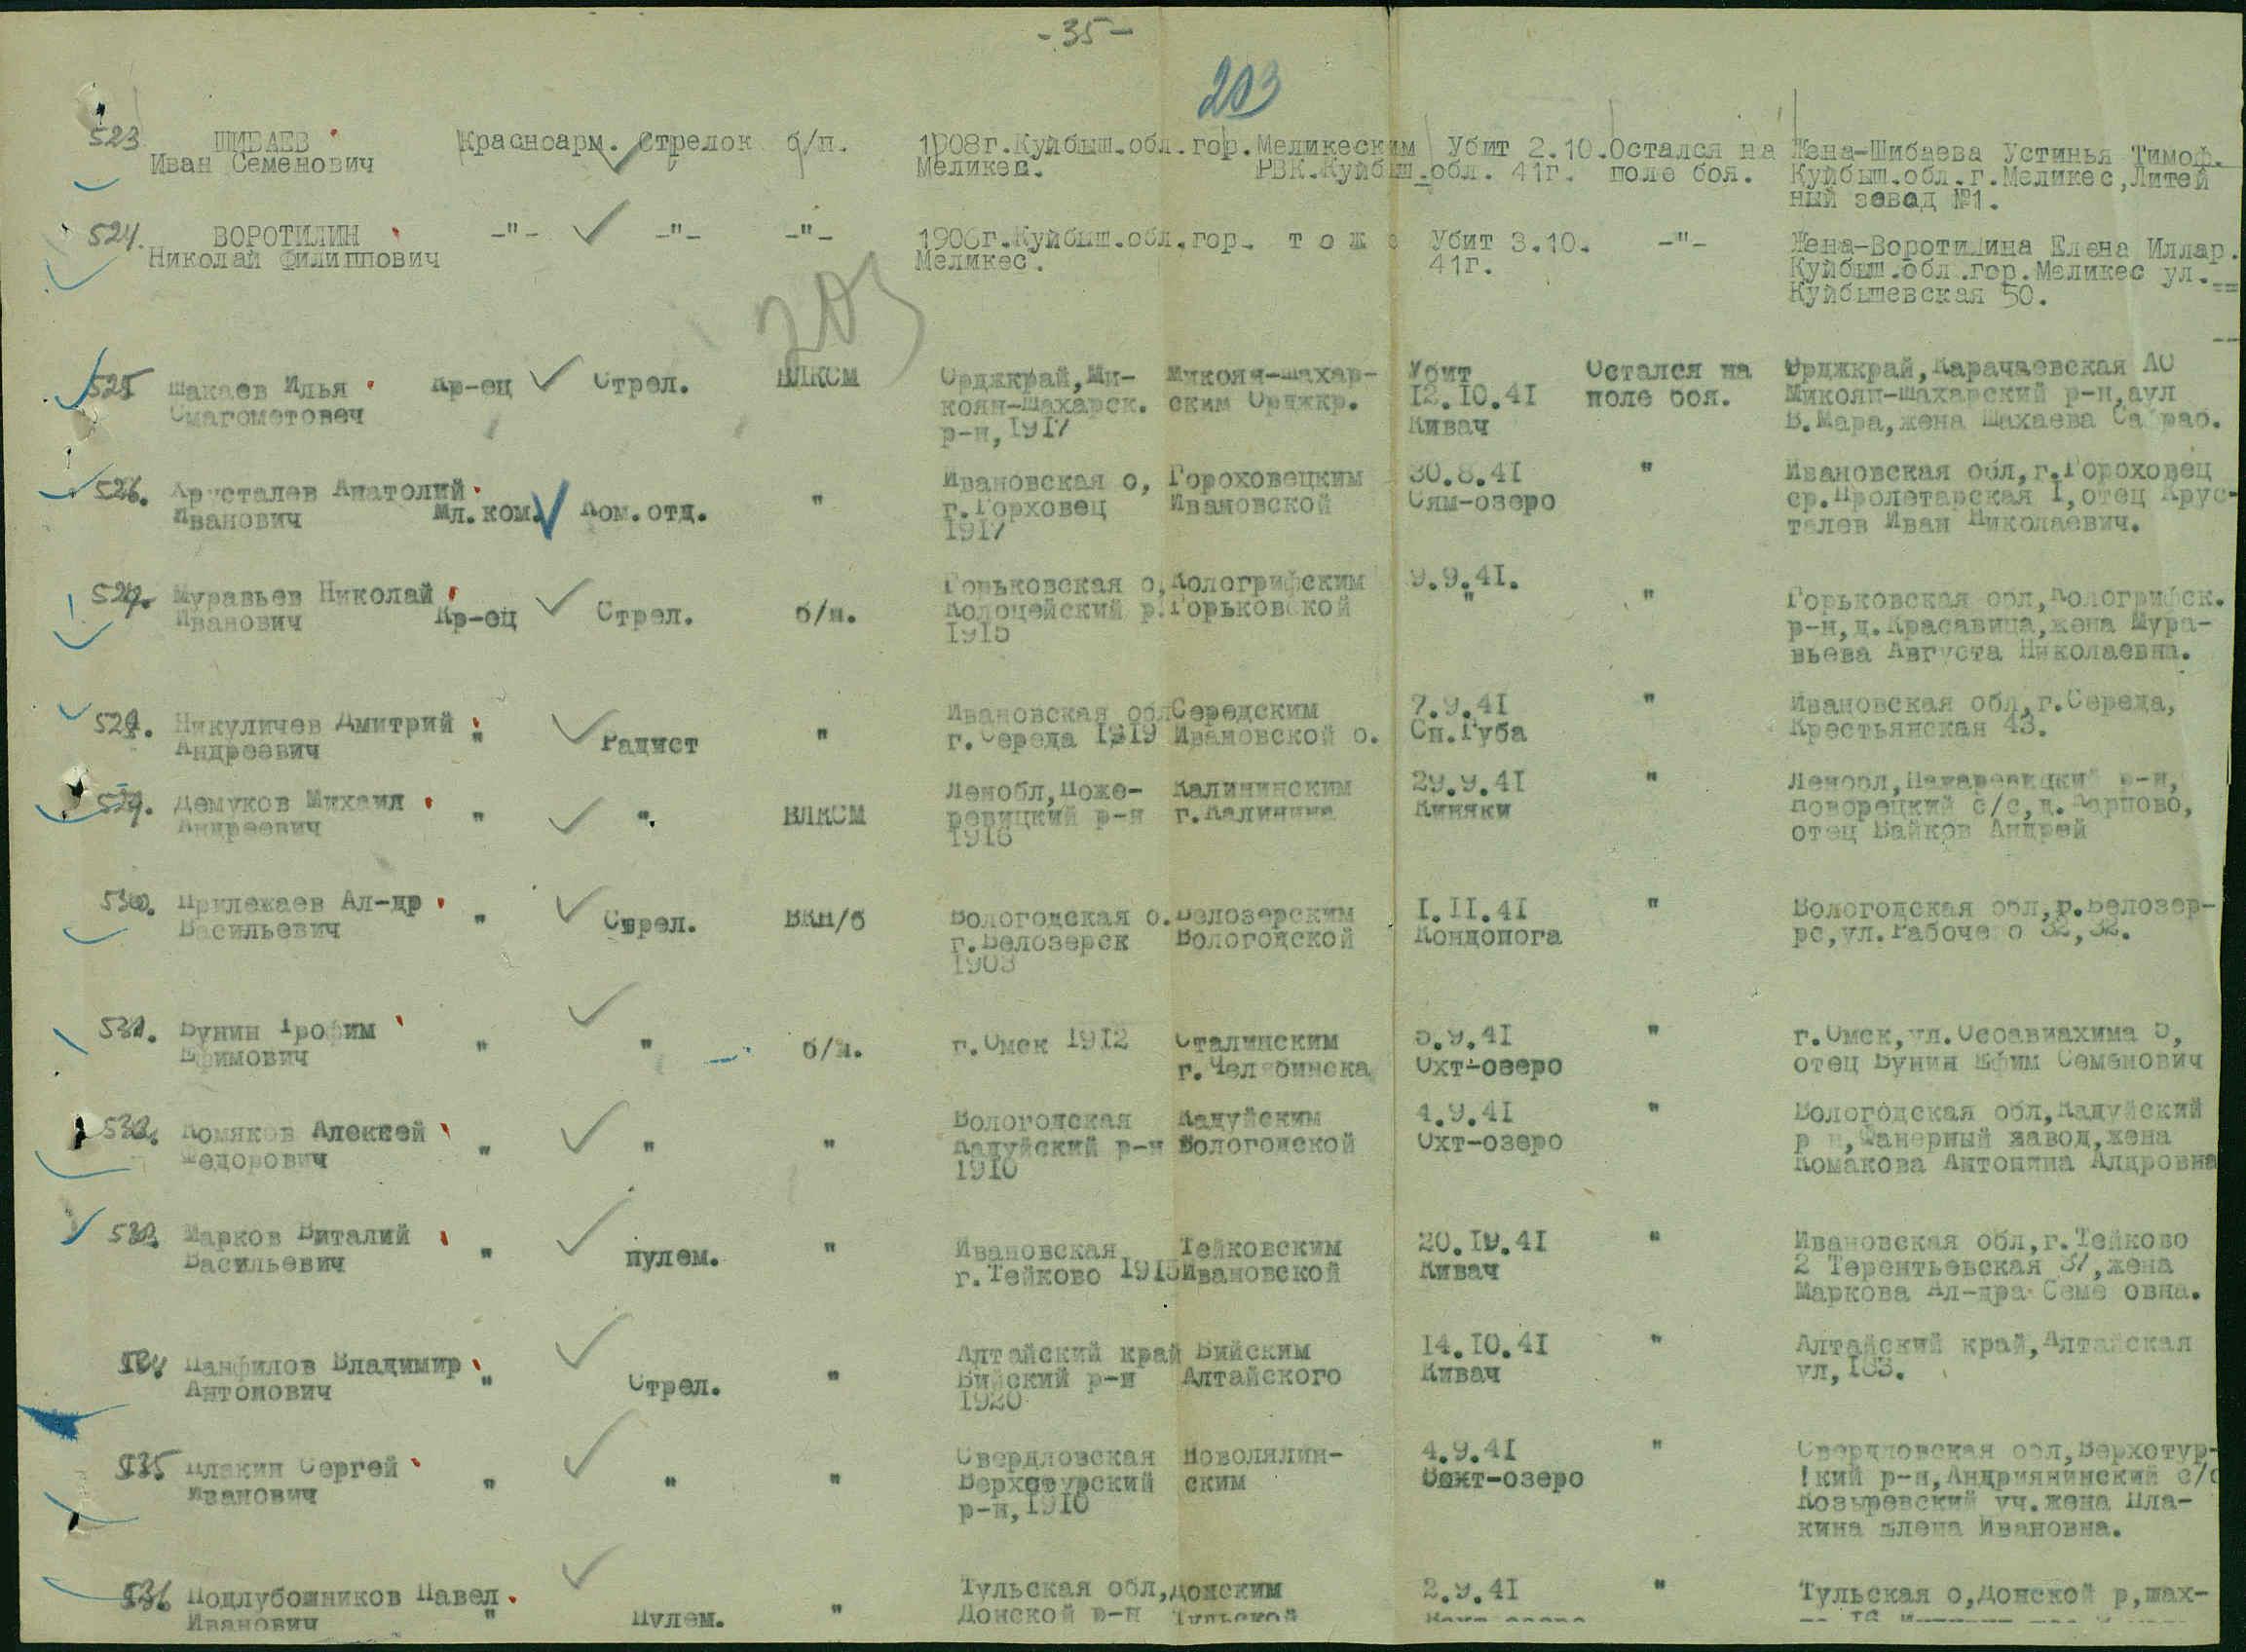 -35-
203
523 ШИБАЕВ Красноарм. Стрелок б/п. 1908г.Куйбыш.обл.гор. Меликеским Убит 2.10. Остался на Жена-Шибаева Устинья Тимоф.
Иван Семенович Меликес. РВК.Куйбыш.обл. 41г. поле боя. Куйбыш.обл.г.Меликес,Литей
ный завод №1.
524. ВОРОТИЛИН -"- -"- -"- 1906г.Куйбыш.обл.гор. т о ж е Убит 3.10. -"- Жена-Воротилина Елена Иллар.
Николай Филиппович Меликес. 41г. Куйбыш.обл.гор.Меликес ул.
Куйбышевская 50.
203
525 Шакаев Илья Кр-ец Стрел. ВЛКСМ Орджкрай,Ми- Микоян-шахар- Убит Остался на Орджкрай,Карачаевская АО
Смагометовеч коян-Шахарск. ским Орджкр. 12.10.41 поле боя. Микоян-шахарский р-н,аул
р-н,1917 Кивач В.Мара,жена Шахаева
526. Хрусталев Анатолий Ивановская о, Гороховецким 30.8.41 " Ивановская обл,г.Гороховец
Иванович Мл.ком. Ком.отд. " г.Горховец Ивановской Сям-озеро ср.Пролетарская I,отец Хрус-
1917 талев Иван Николаевич.
527. Муравьев Николай Горьковская о, Кологрифским 9.9.41. "
Иванович Кр-ец Стрел. б/п. р. Горьковской " Горьковская обл,Кологрифск.
1915 р-н,д.Красавица,жена Мура-
вьева Августа Николаевна.
528. Никуличев Дмитрий " Ивановская обл Середским 7.9.41 " Ивановская обл,г.Середа,
Андреевич Радист " г.Середа 1919 Ивановской о. Сп.Губа Крестьянская 43.
529. Демуков Михаил " " ВЛКСМ Ленобл,Поже- Калининским 29.9.41 " Ленобл, р-н,
Андреевич ревицкий р-н г.Калинина Киняки поворецкий с/с,д.Карпово,
1916 отец Байков Андрей
530. Прилежаев Ал-др " Стрел. ВКП/б Вологодская о. Белозерским 1.11.41 " Вологодская обл,г.Белозер-
Васильевич г.Белозерск Вологодской Кондопога рс,ул.Рабоче о 32,32.
1903
531. Бунин Трофим " " б/п. г.Омск 1912 Сталинским 5.9.41 " г.Омск,ул.Осоавиахима 5,
Ефимович г.Челябинска Охт-озеро отец Бунин Ефим Семенович
532. Комяков Алексей " " " Вологодская Кадуйским 4.9.41 " Вологодская обл,Кадуйский
Федорович Кадуйский р-н Вологодской Охт-озеро р н,Фанерный завод,жена
1910 Комакова Антонина Алдровна
533. Марков Виталий " пулем. " Ивановская Тейковским 20.10.41 " Ивановская обл,г.Тейково
Васильевич г.Тейково 1915 Ивановской Кивач 2 Терентьевская 37,жена
Маркова Ал-дра Семе овна.
534 Панфилов Владимир " Стрел. " Алтайский край Бийским 14.10.41 " Алтайский край,Алтайская
Антонович Бийский р-н Алтайского Кивач ул,163.
1920
535 Плакин Сергей " " " Свердловская Новолялин- 4.9.41 " Свердловская обл,Верхотур-
Иванович Верхотурский ским Вохт-озеро кий р-н,Андриянинский с/с
р-н,1910 Козыревский уч.жена Пла-
кина Елена Ивановна.
536 Подлубошников Павел " Тульская обл, Донским 2.9.41 " Тульская о,Донской р,шах-
Иванович Пулем. " Донской р-н Тульской